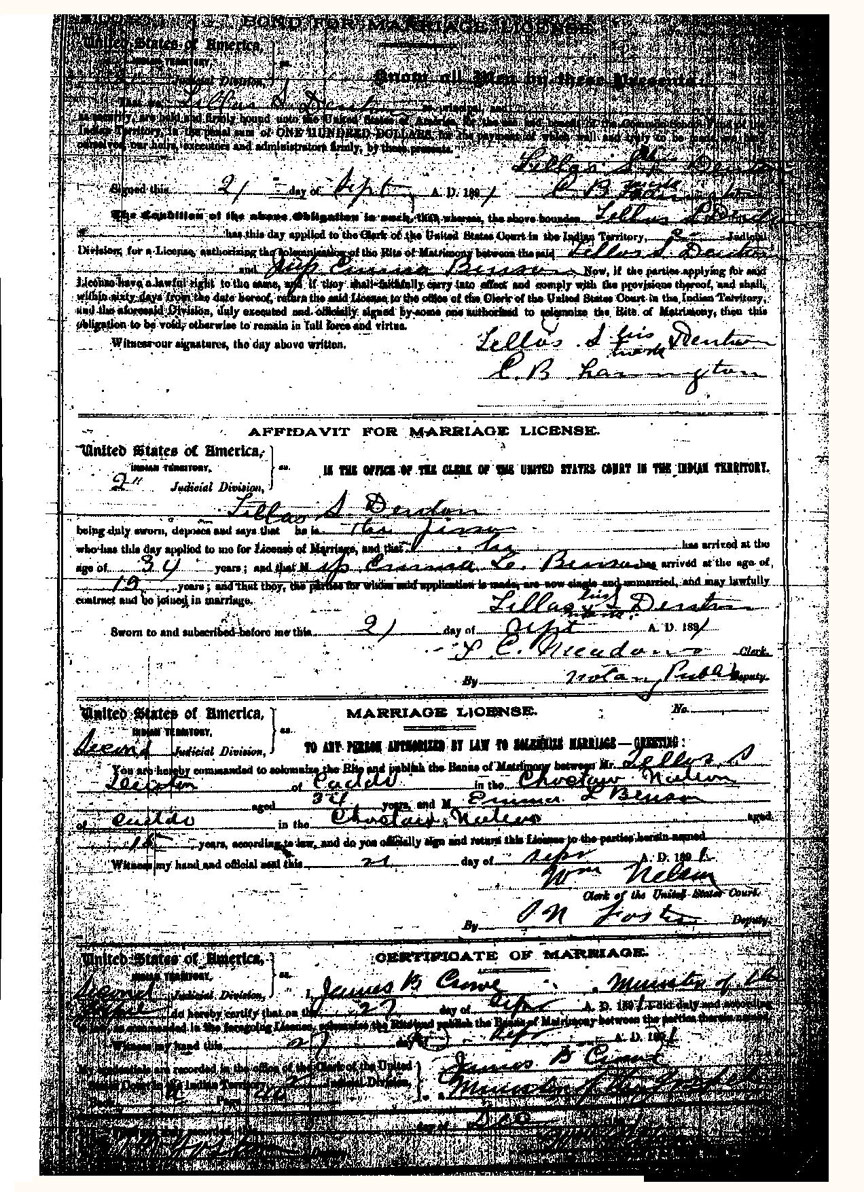 BOND FOR MARRIAGE LICENSE
United States of America,
INDIAN TERRITORY, ss.
Judicial Division,
Know all Men by these Presents
That we Lellas S. Denton as principal, and
as security, are held and firmly bound unto the United States of America, for the use and benefit of the
Indian Territory, in the penal sum of ONE HUNDRED DOLLARS, for the payment of which well and truly to be made we bind
ourselves, our heirs, executors and administrators firmly, by these presents.
Lellas S Denton
Signed this 21 day of Sept A. D. 1891 C B
The Condition of the above Obligation is such, that whereas, the above bounden Lellas S Denton
has this day applied to the Clerk of the United States Court in the Indian Territory, 2" Judicial
Division, for a License, authorizing the solemnization of the Rite of Matrimony between the said Lellas S. Denton
and Emma Benson Now, if the parties applying for said
License have a lawful right to the same, and if they shall faithfully carry into effect and comply with the provisions thereof, and shall,
within sixty days from the date hereof, return the said License to the office of the Clerk of the United States Court in the Indian Territory,
and the aforesaid Division, duly executed and officially signed by some one authorized to solemnize the Rite of Matrimony, then this
obligation to be void; otherwise to remain in full force and virtue.
Witness our signatures, the day above written.
Lellas S his mark Denton
C. B
AFFIDAVIT FOR MARRIAGE LICENSE.
United States of America,
INDIAN TERRITORY, ss.
2" Judicial Division,
IN THE OFFICE OF THE CLERK OF THE UNITED STATES COURT IN THE INDIAN TERRITORY.
Lellas S Denton
being duly sworn, deposes and says that he is the
who has this day applied to me for License of Marriage, and that he has arrived at the
age of 34 years; and that M Emma L. Benson has arrived at the age of,
years; and that they, the parties for whom said application is made, are now single and unmarried, and may lawfully
contract and be joined in marriage.
Lellas S his mark Denton
Sworn to and subscribed before me this 21 day of Sept A. D. 1891
C. Meadows Clerk.
By Notary Public Deputy.
United States of America,
INDIAN TERRITORY, ss.
Second Judicial Division,
MARRIAGE LICENSE. No.
TO ANY PERSON AUTHORIZED BY LAW TO SOLEMNIZE MARRIAGE—GREETING:
You are hereby commanded to solemnize the Rite and publish the Banns of Matrimony between Mr. Lellas S
Denton of Caddo in the Choctaw Nation
aged 34 years, and M Emmer L Benson
of Caddo in the Choctaw Nation aged
years, according to law, and do you officially sign and return this License to the parties herein named
Witness my hand and official seal this 21 day of Sept A. D. 1891.
Wm Nelson
Clerk of the United States Court.
By P N Foster Deputy.
United States of America,
INDIAN TERRITORY, ss.
Second Judicial Division,
CERTIFICATE OF MARRIAGE.
I, James B Crowe Minister of the
Gospel do hereby certify that on the 27 day of Sept A. D. 1891, I did duly and according
to law, as commanded in the foregoing License, solemnize the Rite and publish the Banns of Matrimony between the parties therein named.
Witness my hand this 27 day of Sept A. D. 1891
James B Crowe
My credentials are recorded in the office of the Clerk of the United
States Court in the Indian Territory, 2" Judicial Division,
a Minister of the Gospel
day of Dec